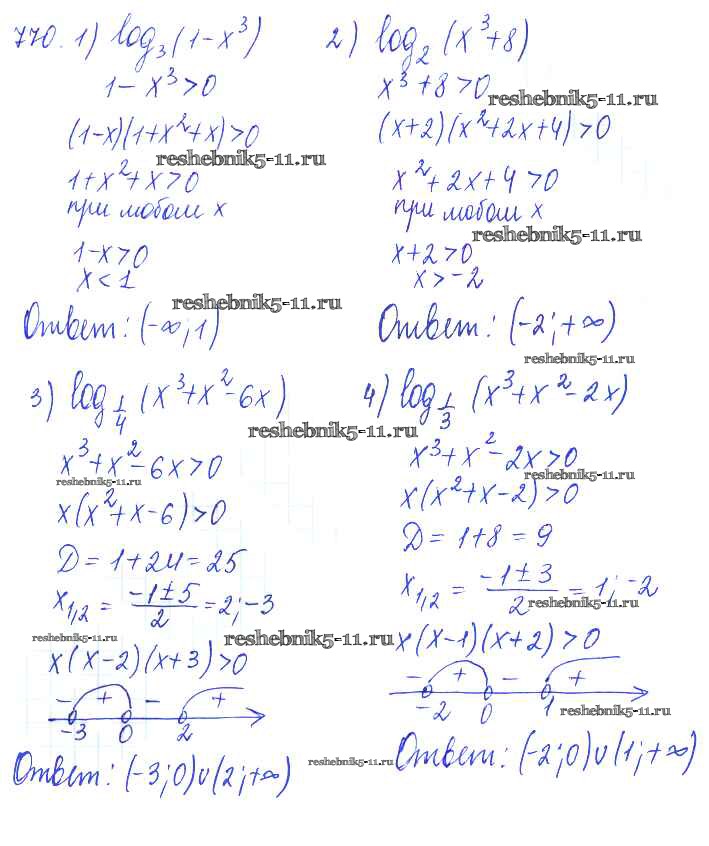 770. 1) log₃(1-x³)
1-x³>0
(1-x)(1+x²+x)>0
reshebnik5-11.ru
1+x²+x>0
при любом x
1-x>0
x<1
reshebnik5-11.ru
Ответ: (-∞; 1)
2) log₂(x³+8)
x³+8>0
reshebnik5-11.ru
(x+2)(x²+2x+4)>0
x²+2x+4>0
при любом x
reshebnik5-11.ru
x+2>0
x>-2
Ответ: (-2; +∞)
reshebnik5-11.ru
3) log_{1/4}(x³+x²-6x)
reshebnik5-11.ru
x³+x²-6x>0
reshebnik5-11.ru
x(x²+x-6)>0
D=1+24=25
x₁,₂ = (-1±5)/2 = 2; -3
reshebnik5-11.ru
reshebnik5-11.ru
x(x-2)(x+3)>0
- + - +
-3 0 2
Ответ: (-3; 0)∪(2; +∞)
reshebnik5-11.ru
4) log_{1/3}(x³+x²-2x)
x³+x²-2x>0
reshebnik5-11.ru
x(x²+x-2)>0
D=1+8=9
x₁,₂ = (-1±3)/2 = 1; -2
reshebnik5-11.ru
x(x-1)(x+2)>0
- + - +
-2 0 1
reshebnik5-11.ru
Ответ: (-2; 0)∪(1; +∞)